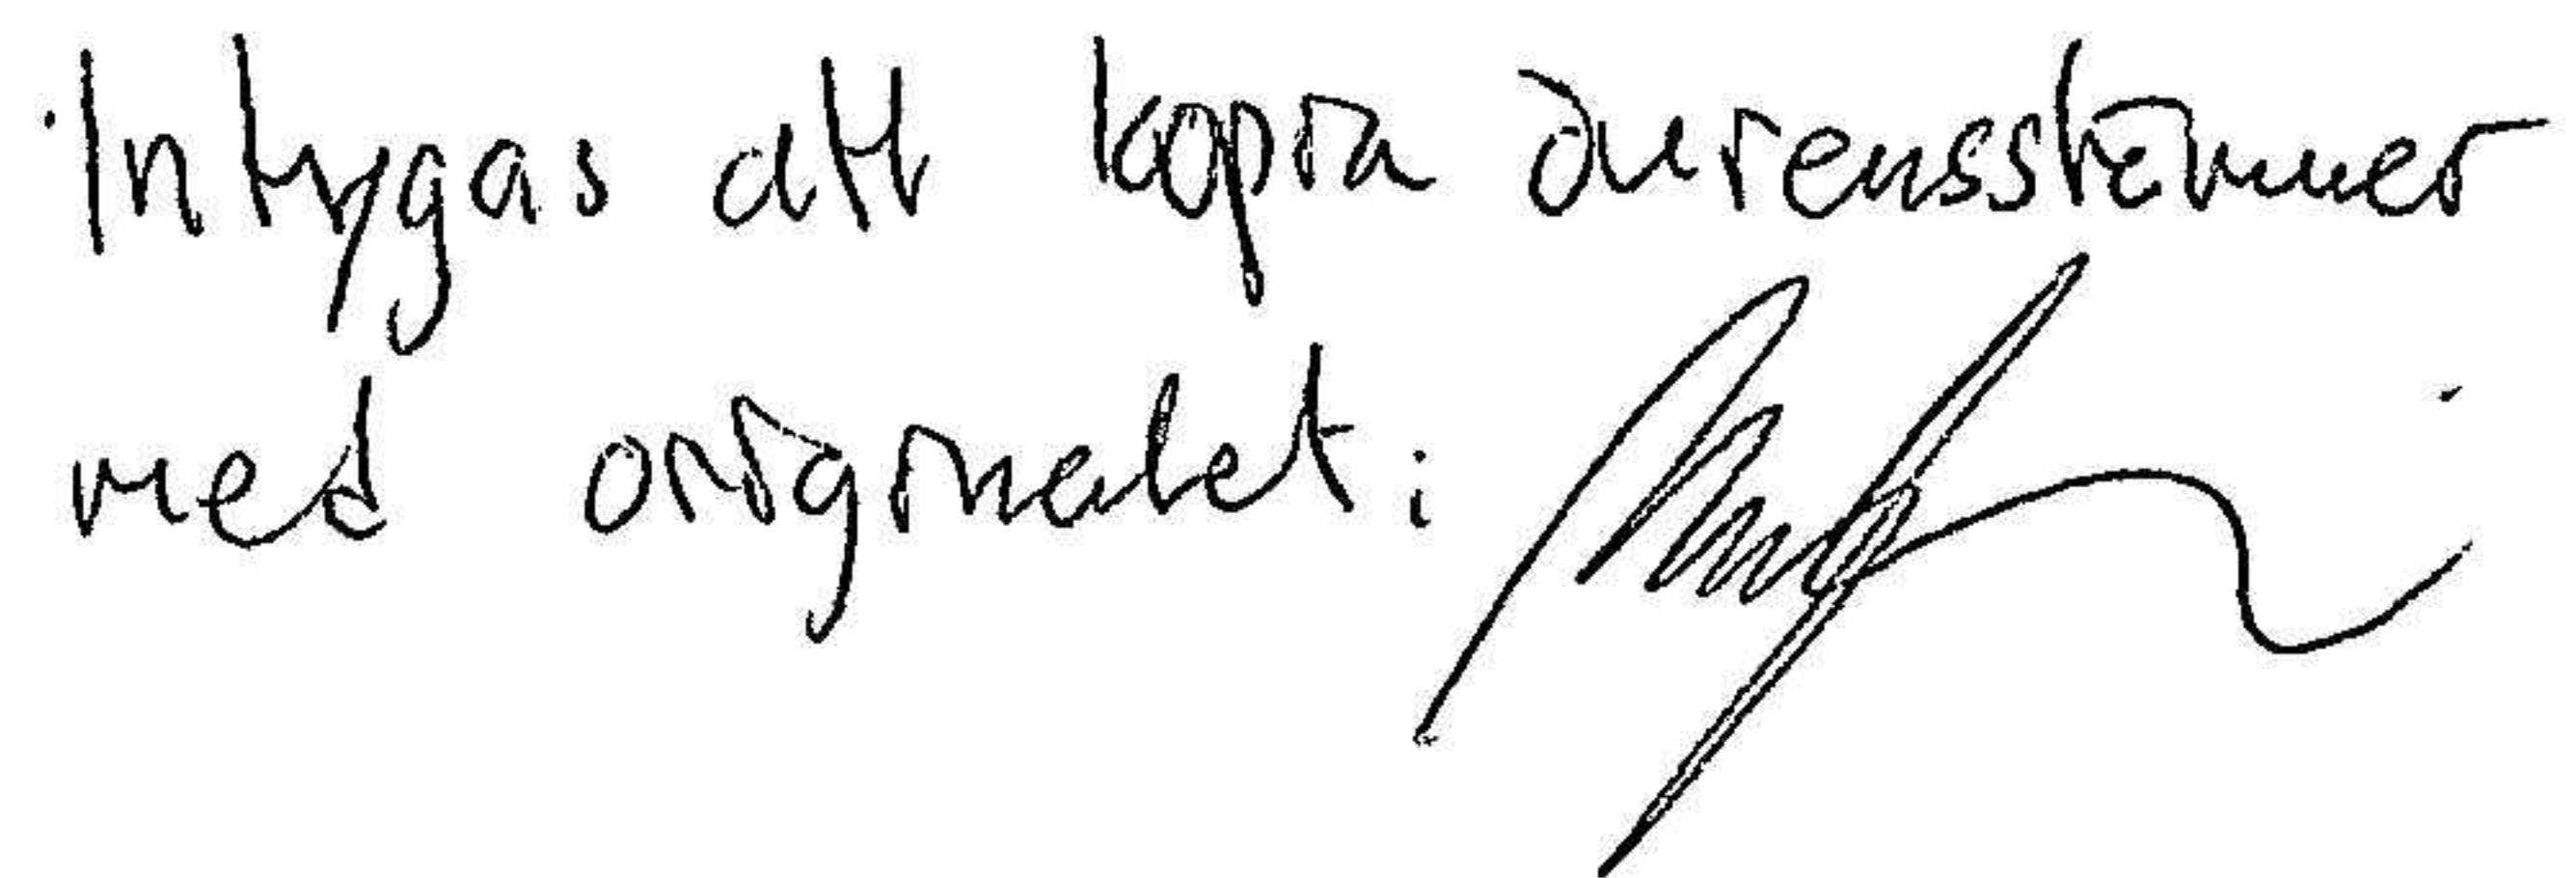 Intygas att kopia överensstämmer
med originalet: